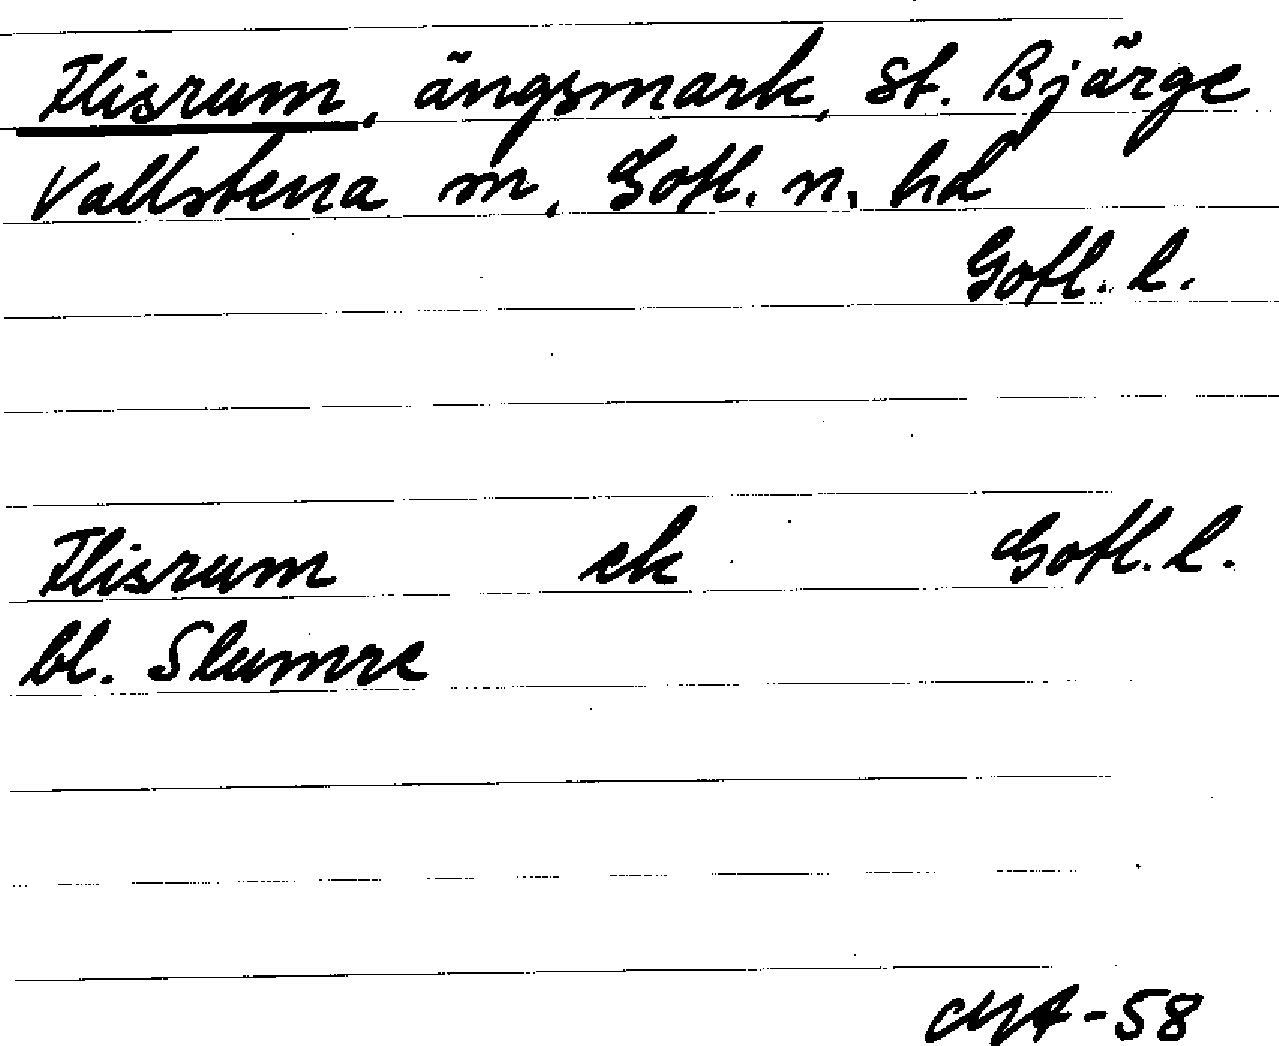 Flisrum, ängsmark, St. Bjärge
Vallstena sn, Gotl. n. hd
Gotl. l.
Flisrum ek Gotl. l.
bl. Slumre
MA-58